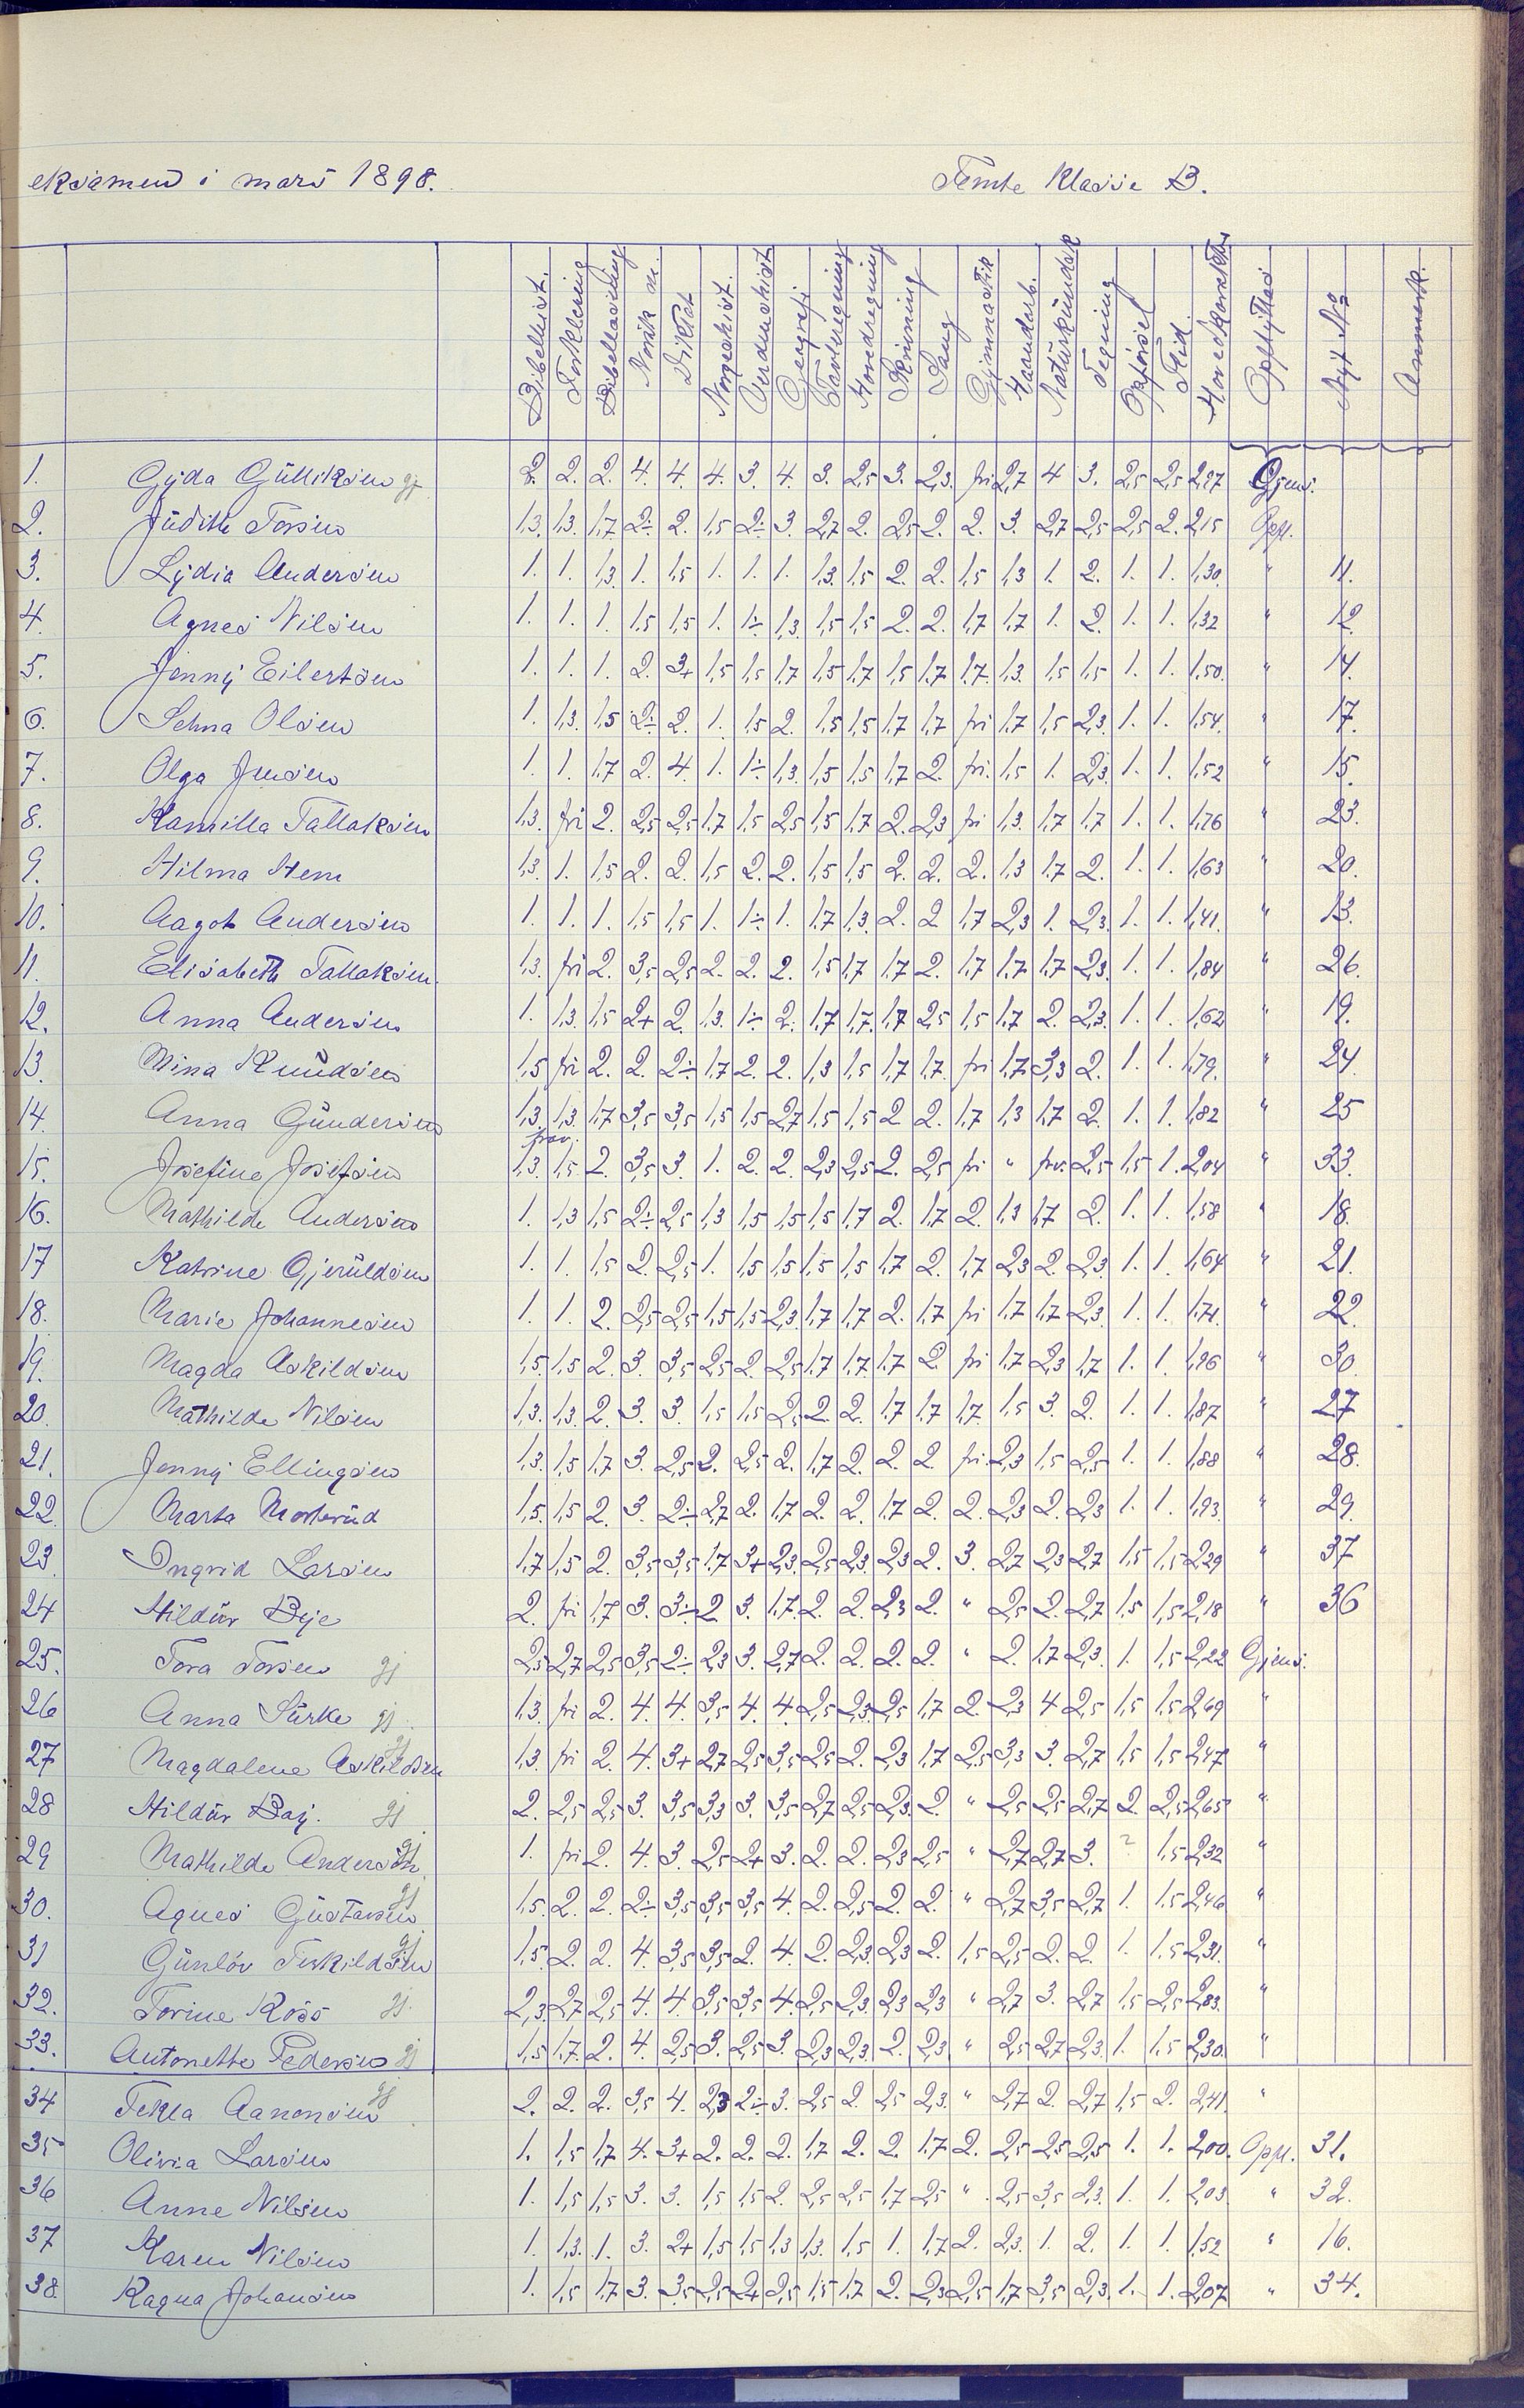 eksamen i mars 1898. Femte Klasse B.
Bibelhist. Forklaring Bibellæsning Norsk m. Diktat Norgeshist. Verdenshist Geografi Tavleregning Hovedregning Skrivning Sang Gymnastik Haandarb. Naturkundsk Tegning Opførsel Flid. Hovedkarakter Opflyttes Nyt No Anmerk.
1. Gyda Gulliksen gj 2. 2. 2. 4. 4. 4. 3. 4. 3. 2,5 3. 2,3. fri 2,7 4 3. 2,5 2,5 2,97 Gjens.
2. Judith Torsen 1,3. 1,3. 1,7 2÷ 2. 1,5 2÷ 3. 2,7 2. 2,5 2. 2. 3. 2,7 2,5 2,5 2. 2,15 Opfl.
3. Lydia Andersen 1. 1. 1,3. 1. 1,5 1. 1. 1. 1,3. 1,5 2. 2. 1,5 1,3 1. 2. 1. 1. 1,30. " 11.
4. Agnes Nilsen 1. 1. 1. 1,5 1,5 1. 1÷ 1,3. 1,5 1,5 2. 2. 1,7 1,7 1. 2. 1. 1. 1,32 " 12.
5. Jenny Eilertsen 1. 1. 1. 2. 3+ 1,5 1,5 1,7 1,5 1,7 1,5 1,7 1,7. 1,3. 1,5 1,5 1. 1. 1,50. " 14.
6. Selma Olsen 1. 1,3. 1,5 2÷ 2. 1. 1,5 2. 1,5 1,5 1,7 1,7 fri 1,7 1,5 2,3. 1. 1. 1,54. " 17.
7. Olga Jensen 1. 1. 1,7 2. 4. 1. 1÷ 1,3. 1,5 1,5 1,7 2. fri. 1,5 1. 2,3. 1. 1. 1,52 " 15.
8. Kamilla Tallaksen 1,3. fri 2. 2,5 2,5 1,7 1,5 2,5 1,5 1,7 2. 2,3 fri 1,3. 1,7 1,7 1. 1. 1,76 " 23.
9. Hilma Hem 1,3. 1. 1,5 2. 2. 1,5 2. 2. 1,5 1,5 2. 2. 2. 1,3 1,7 2. 1. 1. 1,63 " 20.
10. Aagot Andersen 1. 1. 1. 1,5 1,5 1. 1÷ 1. 1,7 1,3. 2. 2 1,7 2,3 1. 2,3. 1. 1. 1,41. " 13.
11. Elisabeth Tallaksen. 1,3. fri 2. 3,5 2,5 2. 2. 2. 1,5 1,7 1,7 2. 1,7 1,7 1,7 2,3. 1. 1. 1,84 " 26.
12. Anna Andersen 1. 1,3. 1,5 2+ 2. 1,3. 1÷ 2. 1,7 1,7. 1,7 2,5 1,5 1,7 2. 2,3. 1. 1. 1,62 " 19.
13. Mina Knudsen 1,5 fri 2. 2. 2÷ 1,7 2. 2. 1,3 1,5 1,7 1,7. fri 1,7 3,3 2. 1. 1. 1,79. " 24.
14. Anna Gundersen 1,3. 1,3. 1,7 3,5 3,5 1,5 1,5 2,7 1,5 1,5 2 2. 1,7 1,3 1,7 2. 1. 1. 1,82 " 25
15. Josefine Josefsen 1,3. 1,5 2. 3,5 3. 1. 2. 2. 2,3 2,5 2. 2,5 fri " fri. 2,5 1,5 1. 2,04 " 33.
16. Mathilde Andersen 1. 1,3 1,5 2÷ 2,5 1,3 1,5 1,5 1,5 1,7 2. 1,7 2. 1,3 1,7 2. 1. 1. 1,58 " 18.
17 Katrine Gjeruldsen 1. 1. 1,5 2. 2,5 1. 1,5 1,5 1,5 1,5 1,7 2. 1,7 2,3 2. 2,3. 1. 1. 1,64 " 21.
18. Marie Johannesen 1. 1. 2. 2,5 2,5 1,5 1,5 2,3. 1,7 1,7 2. 1,7 fri 1,7 1,7 2,3. 1. 1. 1,71. " 22.
19. Magda Askildsen 1,5. 1,5 2. 3. 3,5 2,5 2. 2,5 1,7 1,7. 1,7 2. fri 1,7 2,3 1,7 1. 1. 1,96 " 30.
20. Mathilde Nilsen 1,3. 1,3. 2. 3. 3. 1,5 1,5 2,5 2. 2. 1,7 1,7 1,7. 1,5 3. 2. 1. 1. 1,87 " 27
21. Jenny Ellingsen 1,3. 1,5 1,7 3. 2,5 2. 2,5 2. 1,7 2. 2. 2. fri. 2,3 1,5 2,5 1. 1. 1,88 " 28.
22. Marta Mosterud 1,5. 1,5 2. 3. 2÷ 2,7 2. 1,7 2. 2. 1,7 2. 2. 2,3 2. 2,3 1. 1. 1,93. " 29.
23. Ingrid Larsen 1,7 1,5 2. 3,5 3,5 1,7 3+ 2,3. 2,5 2,3. 2,3 2. 3. 2,7 2,3 2,7 1,5 1,5 2,29 " 37
24 Hildur Beje 2. fri 1,7 3. 3÷ 2 3. 1,7. 2. 2. 2,3 2. " 2,5 2. 2,7 1,5 1,5 2,18 " 36
25. Tora Torsen gj 2,5 2,7 2,5 3,5 2÷ 2,3 3. 2,7 2. 2. 2. 2. " 2. 1,7 2,3. 1. 1,5 2,22 Gjens.
26 Anna Sürke gj. 1,3. fri 2. 4. 4. 3,5 4. 4. 2,5 2,3. 2,5 1,7 2. 2,3 4 2,5 1,5 1,5 2,69 "
27 Magdalene Askildsen gj 1,3. fri 2. 4. 3+ 2,7 2,5 3,5 2,5 2. 2,3 1,7 2,5 3,3 3. 2,7 1,5 1,5 2,47 "
28 Hildur Baj. gj 2. 2,5 2,5 3. 3,5 3,3 3. 3,5 2,7 2,5 2,3. 2. " 2,5 2,5 2,7 2. 2,5 2,65 "
29 Mathilde Andersen gj 1. fri 2. 4. 3. 2,5 2+ 3. 2. 2. 2,3 2,5 " 2,7 2,7 3. ? 1,5 2,32 "
30. Agnes Gustavsen gj 1,5. 2. 2. 2÷ 3,5 3,5 3,5 4. 2. 2,5 2. 2. " 2,7 3,5 2,7 1. 1,5 2,46 "
31 Gunlöv Terkildsen gj 1,5. 2. 2. 4. 3,5 3,5 2. 4. 2. 2,3 2,3 2. 1,5 2,5 2. 2. 1. 1,5 2,31. "
32. Torine Röss gj. 2,3. 2,7 2,5 4. 4. 3,5 3,5 4. 2,5 2,3. 2,3 2,3 " 2,7 3. 2,7 1,5 2,5 2,83. "
33. Antonette Pedersen gj 1,5 1,7. 2. 4. 2,5 3. 2,5 3. 2,3 2,3. 2. 2,3 " 2,5 2,7 2,3. 1. 1,5 2,30. "
34 Tekla Aanonsen gj 2. 2. 2. 3,5 4. 2,3 2÷ 3. 2,5 2. 2,5 2,3. " 2,7 2. 2,7 1,5 2. 2,41. "
35 Olivia Larsen 1. 1,5 1,7 4. 3+ 2. 2. 2. 1,7 2. 2. 1,7 2. 2,5 2,5 2,5 1. 1. 2,00. Opfl. 31.
36 Anne Nilsen 1. 1,5 1,5 3. 3. 1,5 1,5 2. 2,5 2,5 1,7 2,5 " 2,5 3,5 2,3. 1. 1. 2,03. " 32.
37 Karen Nilsen 1. 1,3. 1. 3. 2+ 1,5 1,5 1,3 1,3. 1,5 1. 1,7 2. 2,3. 1. 2. 1. 1. 1,52 " 16.
38. Ragna Johansen 1. 1,5 1,7 3. 3,5 2,5 2+ 2,5 1,5 1,7 2. 2,3 2,5 1,7 3,5 2,3. 1. 1. 2,07 " 34.